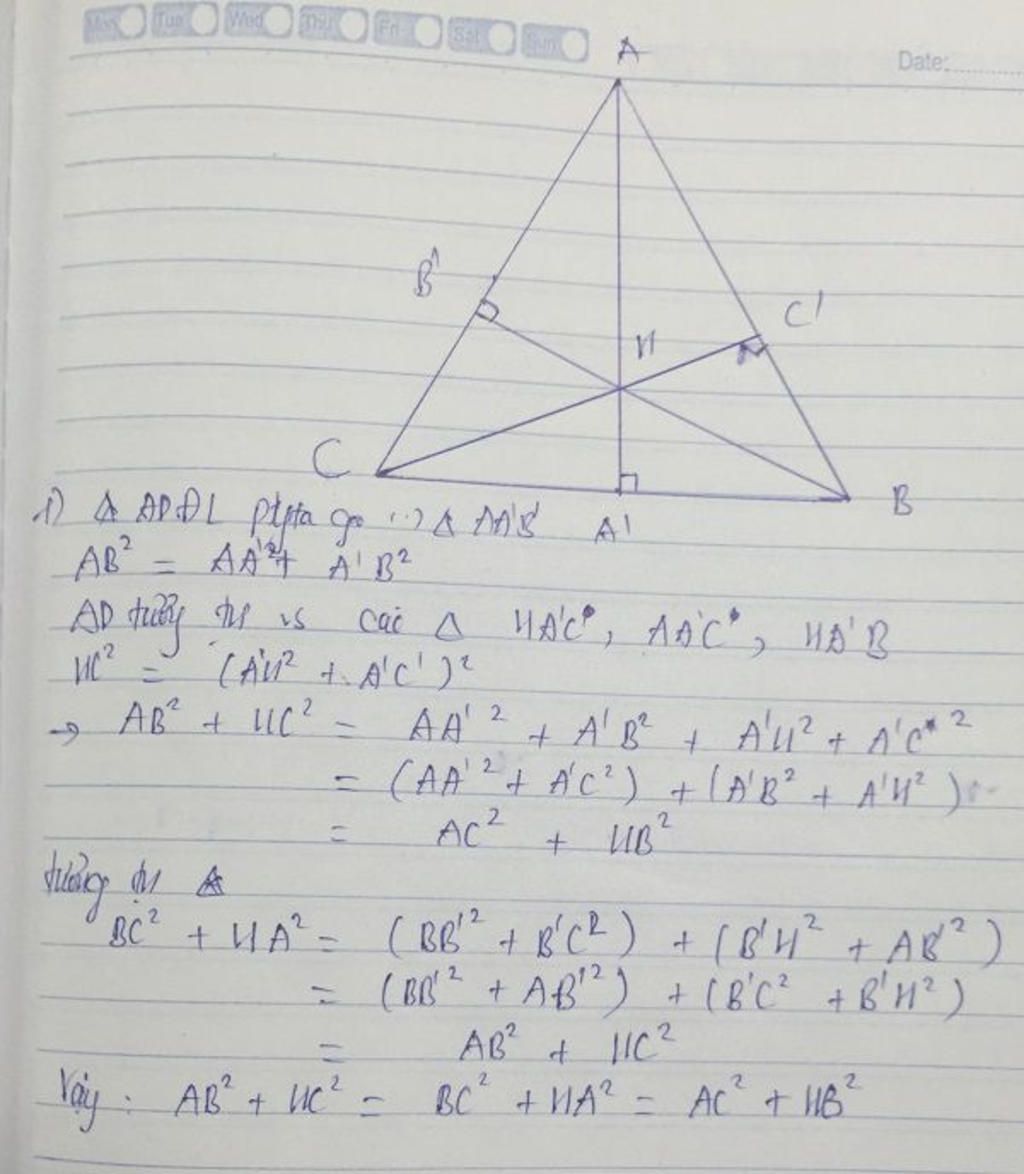 Mon Tue Wed Thu Fri Sat Sun
Date:
A
B'
C'
H
C
B
A'
1) Δ AD ĐL pytago Δ AA'B
AB² = AA'² + A'B²
AD tương tự vs các Δ HA'C, AA'C, HA'B
HC² = (A'H² + A'C')²
→ AB² + HC² = AA'² + A'B² + A'H² + A'C²
= (AA'² + A'C²) + (A'B² + A'H²)
= AC² + HB²
tương tự
BC² + HA² = (BB'² + B'C²) + (B'H² + AB'²)
= (BB'² + AB'²) + (B'C² + B'H²)
= AB² + HC²
Vậy : AB² + HC² = BC² + HA² = AC² + HB²